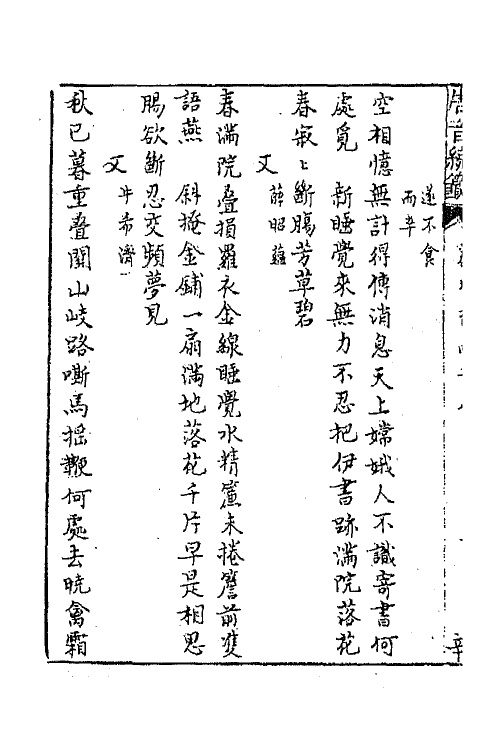 唐音統籤
遂不食
而卒
空相憶無計得傳消息天上嫦娥人不識寄書何
處覓　新睡覺來無力不忍把伊書跡滿院落花
春寂〻斷腸芳草碧
又　薛昭蘊
春滿院疊損羅衣金線睡覺水精簾未捲簷前雙
語燕　斜掩金鋪一扇滿地落花千片早是相思
腸欲斷忍交頻夢見
又　牛希濟
秋已暮重疊關山岐路嘶馬搖鞭何處去曉禽霜